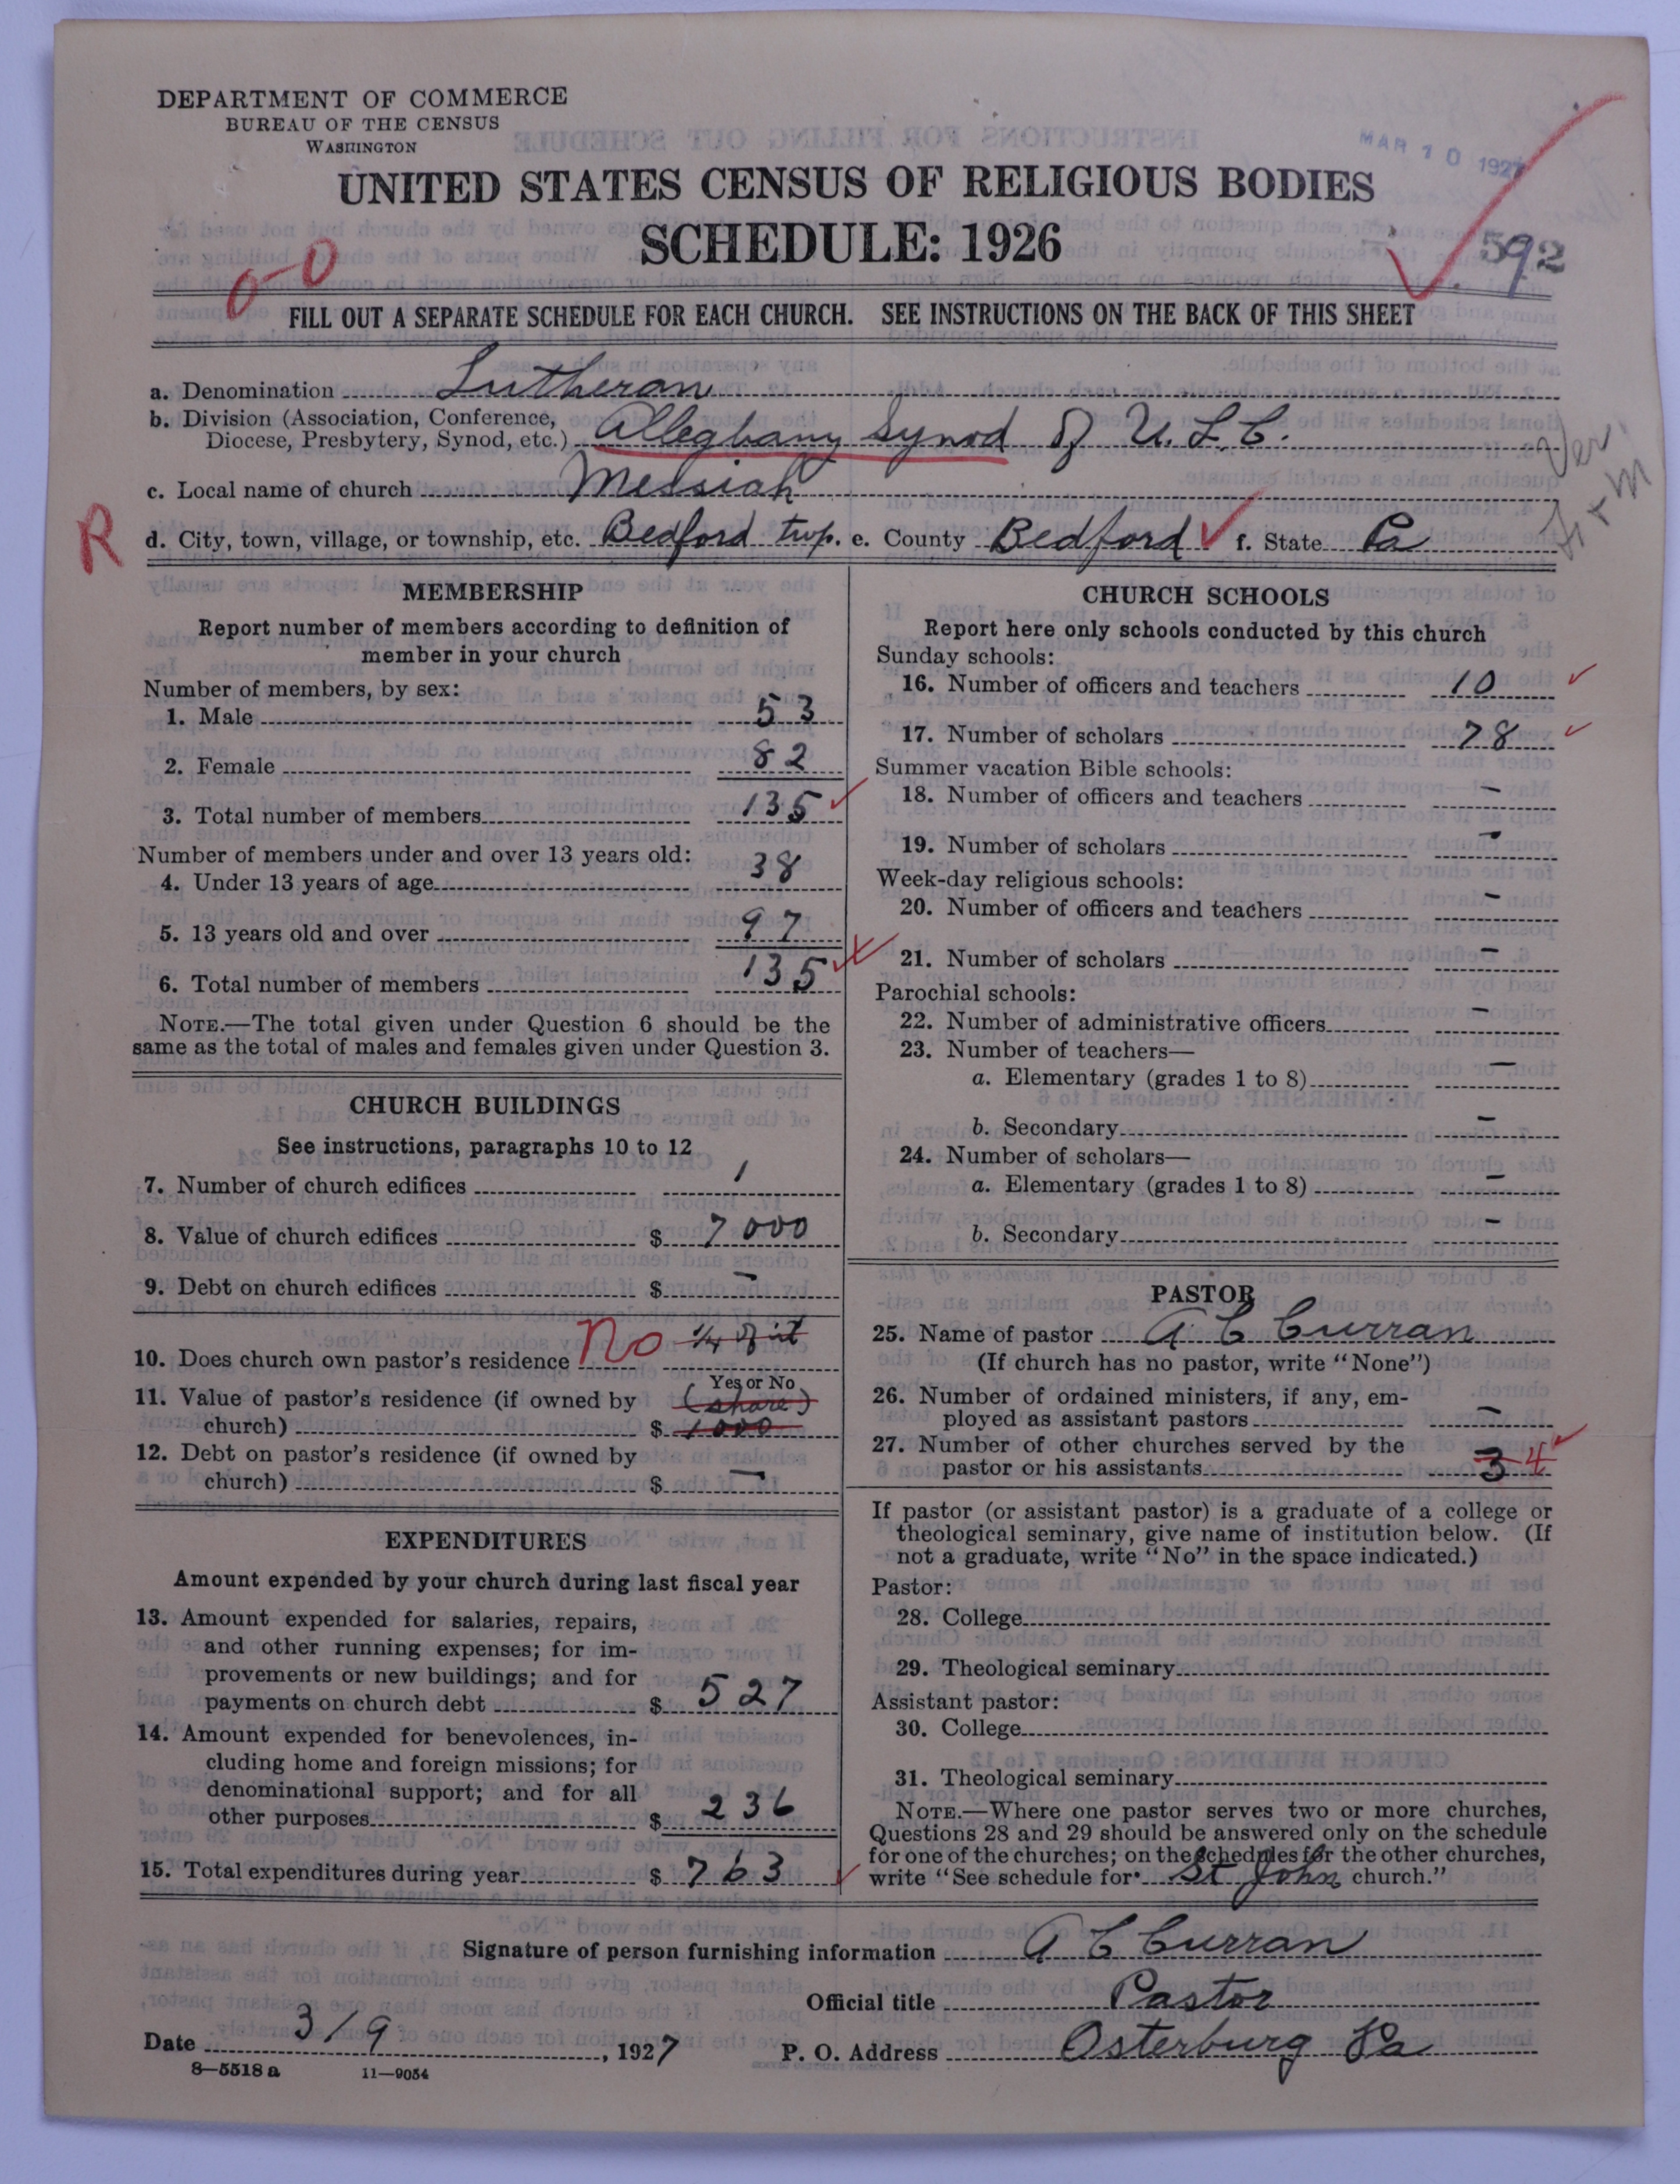 DEPARTMENT OF COMMERCE
BUREAU OF THE CENSUS
WASHINGTON
MAR 10 1927
UNITED STATES CENSUS OF RELIGIOUS BODIES
SCHEDULE: 1926
592
FILL OUT A SEPARATE SCHEDULE FOR EACH CHURCH. SEE INSTRUCTIONS ON THE BACK OF THIS SHEET
a. Denomination Lutheran
b. Division (Association, Conference,
Diocese, Presbytery, Synod, etc.) Alleghany Synod of U. L. C.
c. Local name of church Messiah
R
d. City, town, village, or township, etc. Bedford twp. e. County Bedford f. State Pa
MEMBERSHIP
Report number of members according to definition of
member in your church
Number of members, by sex:
1. Male 53
2. Female 82
3. Total number of members 135
Number of members under and over 13 years old:
4. Under 13 years of age 38
5. 13 years old and over 97
6. Total number of members 135
NOTE.—The total given under Question 6 should be the
same as the total of males and females given under Question 3.
CHURCH BUILDINGS
See instructions, paragraphs 10 to 12
7. Number of church edifices 1
8. Value of church edifices $ 7000
9. Debt on church edifices $ –
10. Does church own pastor's residence No 1/4 of it
Yes or No
11. Value of pastor's residence (if owned by (share)
church) $ 1000
12. Debt on pastor's residence (if owned by
church) $ –
EXPENDITURES
Amount expended by your church during last fiscal year
13. Amount expended for salaries, repairs,
and other running expenses; for im-
provements or new buildings; and for
payments on church debt $ 527
14. Amount expended for benevolences, in-
cluding home and foreign missions; for
denominational support; and for all
other purposes $ 236
15. Total expenditures during year $ 763
CHURCH SCHOOLS
Report here only schools conducted by this church
Sunday schools:
16. Number of officers and teachers 10
17. Number of scholars 78
Summer vacation Bible schools:
18. Number of officers and teachers –
19. Number of scholars –
Week-day religious schools:
20. Number of officers and teachers –
21. Number of scholars –
Parochial schools:
22. Number of administrative officers –
23. Number of teachers—
a. Elementary (grades 1 to 8) –
b. Secondary –
24. Number of scholars—
a. Elementary (grades 1 to 8) –
b. Secondary –
PASTOR
25. Name of pastor A C Curran
(If church has no pastor, write "None")
26. Number of ordained ministers, if any, em-
ployed as assistant pastors –
27. Number of other churches served by the
pastor or his assistants 3 4
If pastor (or assistant pastor) is a graduate of a college or
theological seminary, give name of institution below. (If
not a graduate, write "No" in the space indicated.)
Pastor:
28. College
29. Theological seminary
Assistant pastor:
30. College
31. Theological seminary
NOTE.—Where one pastor serves two or more churches,
Questions 28 and 29 should be answered only on the schedule
for one of the churches; on the schedules for the other churches,
write "See schedule for St John church."
Signature of person furnishing information A C Curran
Official title Pastor
Date 3/9, 1927 P. O. Address Osterburg Pa
8—5518 a 11—9054